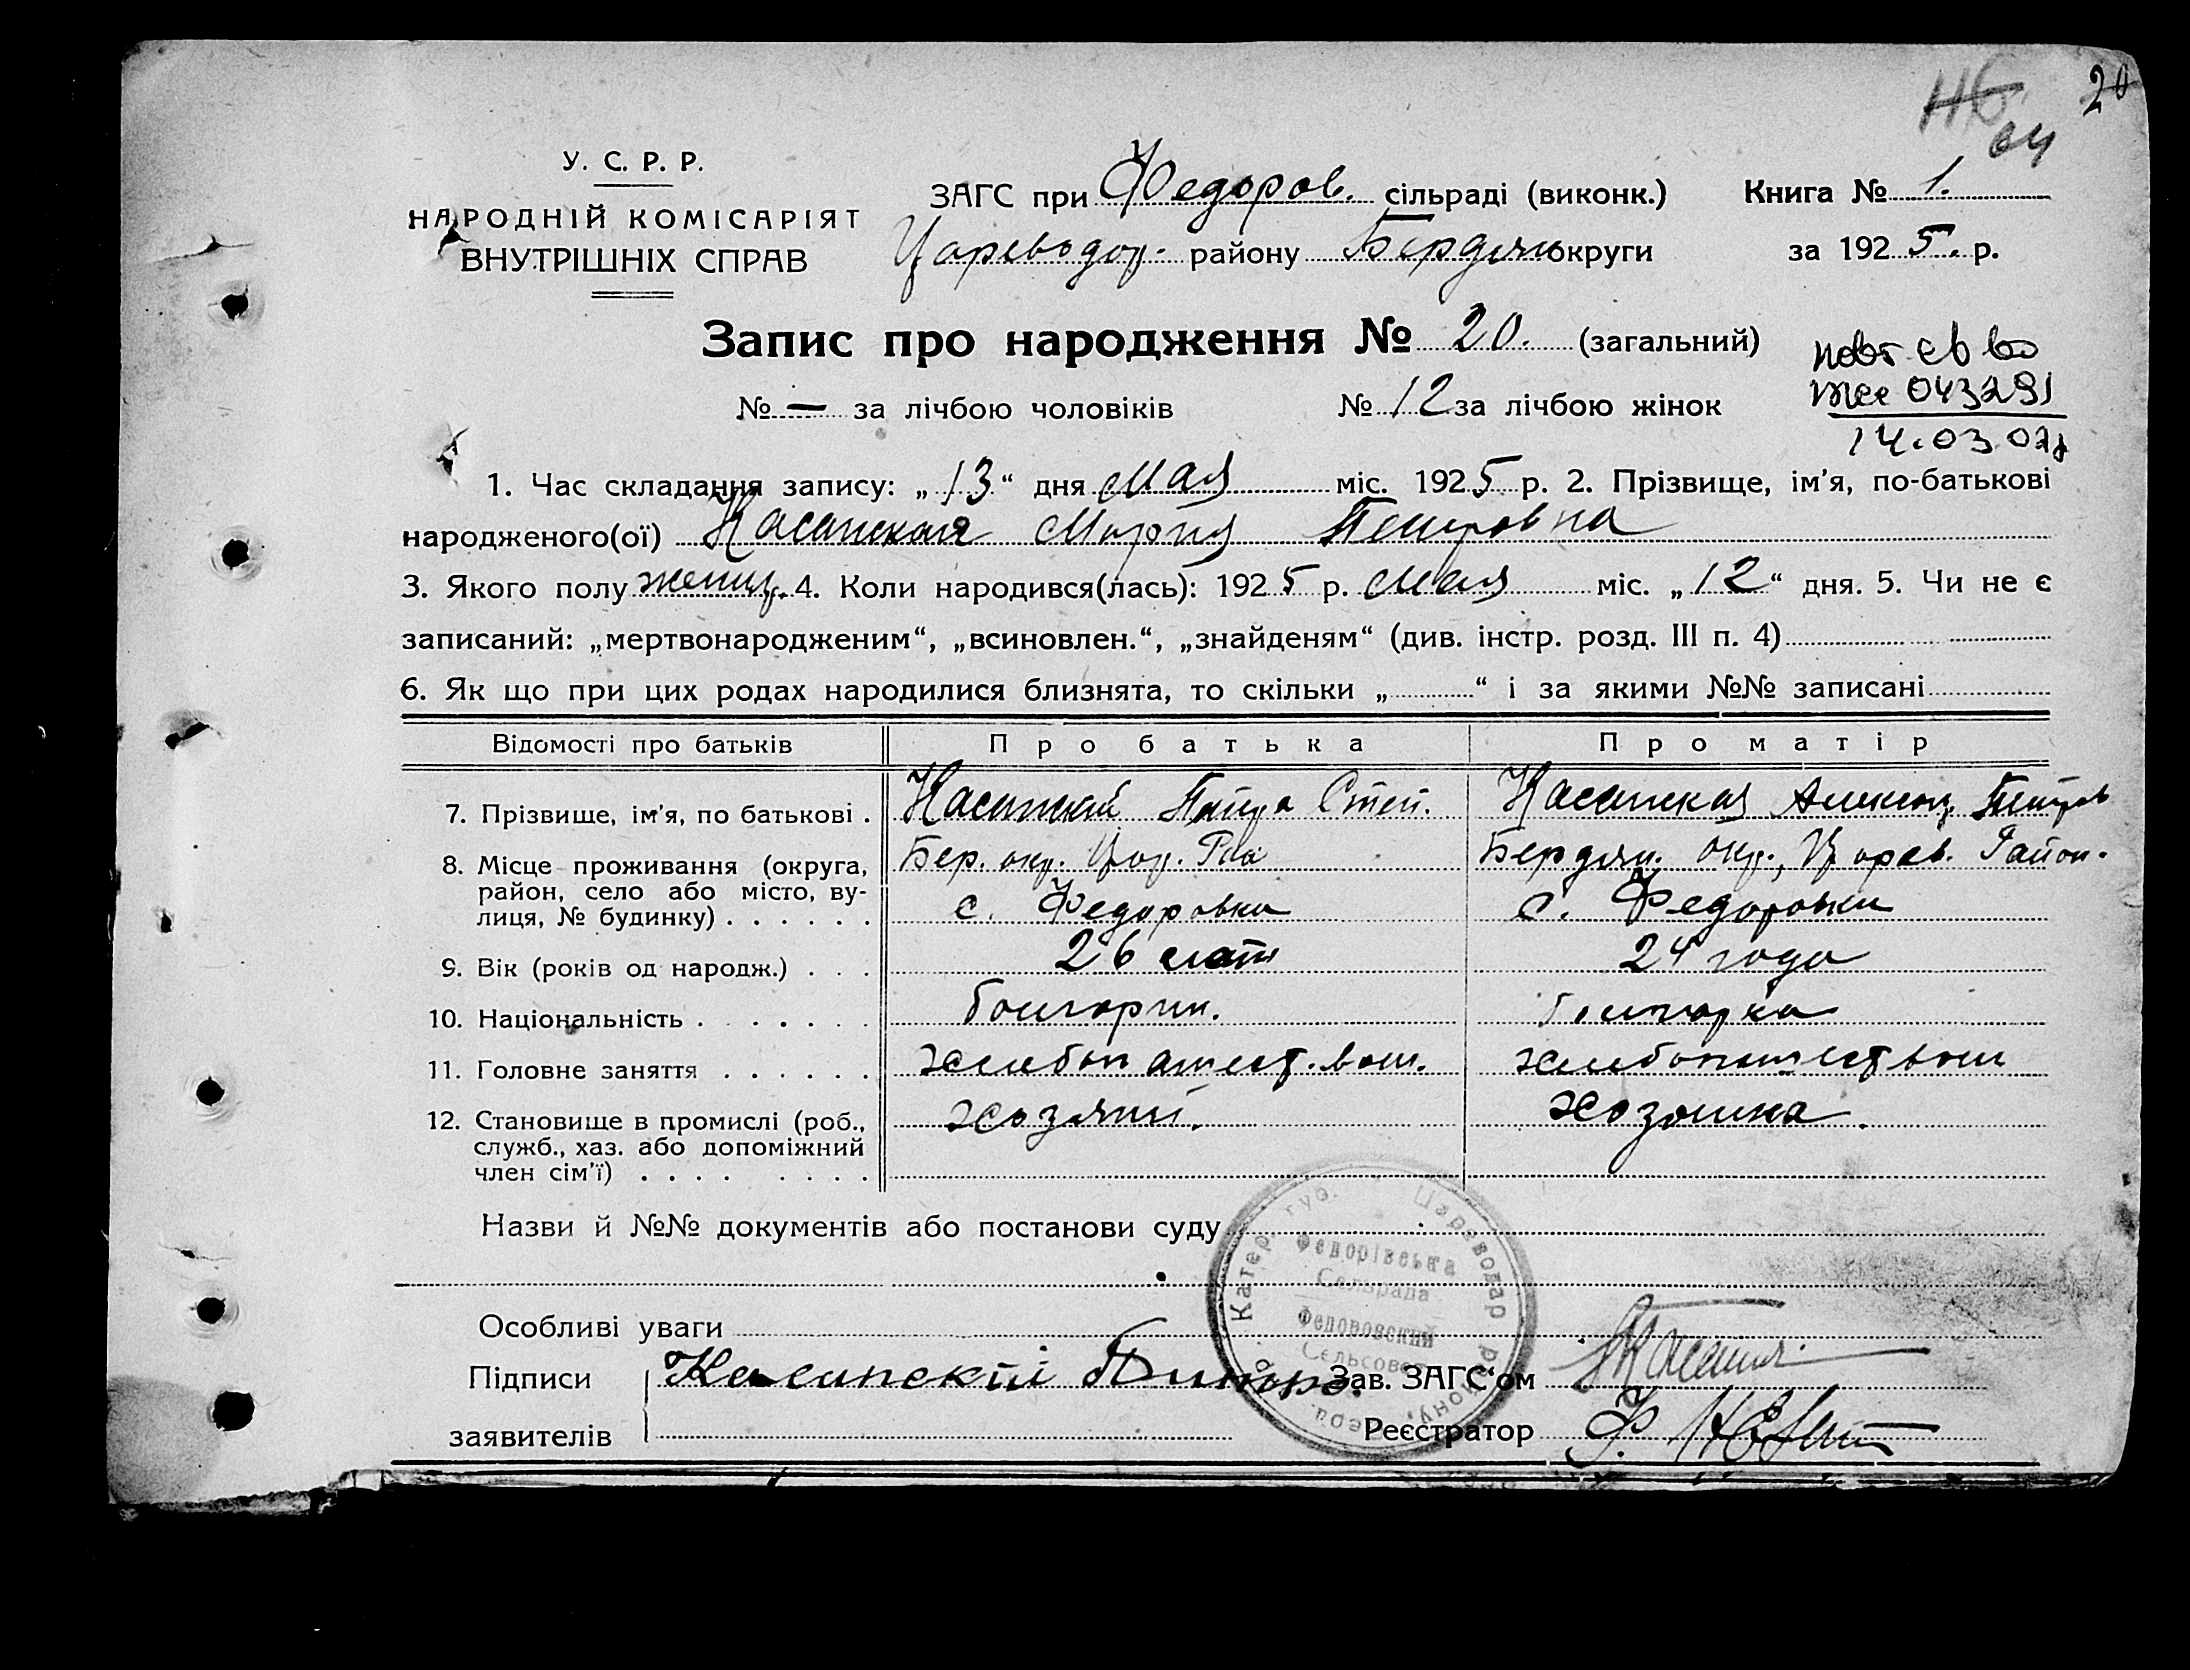 20
64
У. С. Р. Р.
НАРОДНІЙ КОМІСАРІЯТ
ВНУТРІШНІХ СПРАВ
ЗАГС при Федоров. сільраді (виконк.) Книга № 1.
Цареводар. району Бердян округи за 1925. р.
Запис про народження № 20. (загальний)
№ — за лічбою чоловіків № 12 за лічбою жінок
повт св во
043291
14.03.02
1. Час складання запису: „13“ дня Мая міс. 1925 р. 2. Прізвище, ім'я, по-батькові
народженого(ої) Касапская Мария Петровна
3. Якого полу женщ. 4. Коли народився(лась): 1925 р. Мая міс. „12“ дня. 5. Чи не є
записаний: „мертвонародженим“, „всиновлен.“, „знайденям“ (див. інстр. розд. III п. 4)
6. Як що при цих родах народилися близнята, то скільки „ “ і за якими №№ записані
Відомості про батьків Про батька Про матір
7. Прізвище, ім'я, по батькові . Касапский Степ. Касапская Петров
8. Місце проживання (округа, Бер. окр. Цар. Рна Бердян. окр., Царев. Район.
район, село або місто, ву-
лиця, № будинку) . . . . . . с. Федоровка с. Федоровки
9. Вік (років од народж.) . . . 26 лет 24 года
10. Національність . . . . . . . болгарин. болгарка
11. Головне заняття . . . . . . хлебопашест.вом. хлебопашеством
12. Становище в промислі (роб., хозяин. хозяйка.
служб., хаз. або допоміжний
член сім'ї) . . . . . . . .
Назви й №№ документів або постанови суду
Особливі уваги
Підписи Касапский Зав. ЗАГС‘ом
заявителів Реєстратор Ф.
Катер. губ. Цареводар району,
Федорівська
Сельрада
Федоровский
Сельсовет